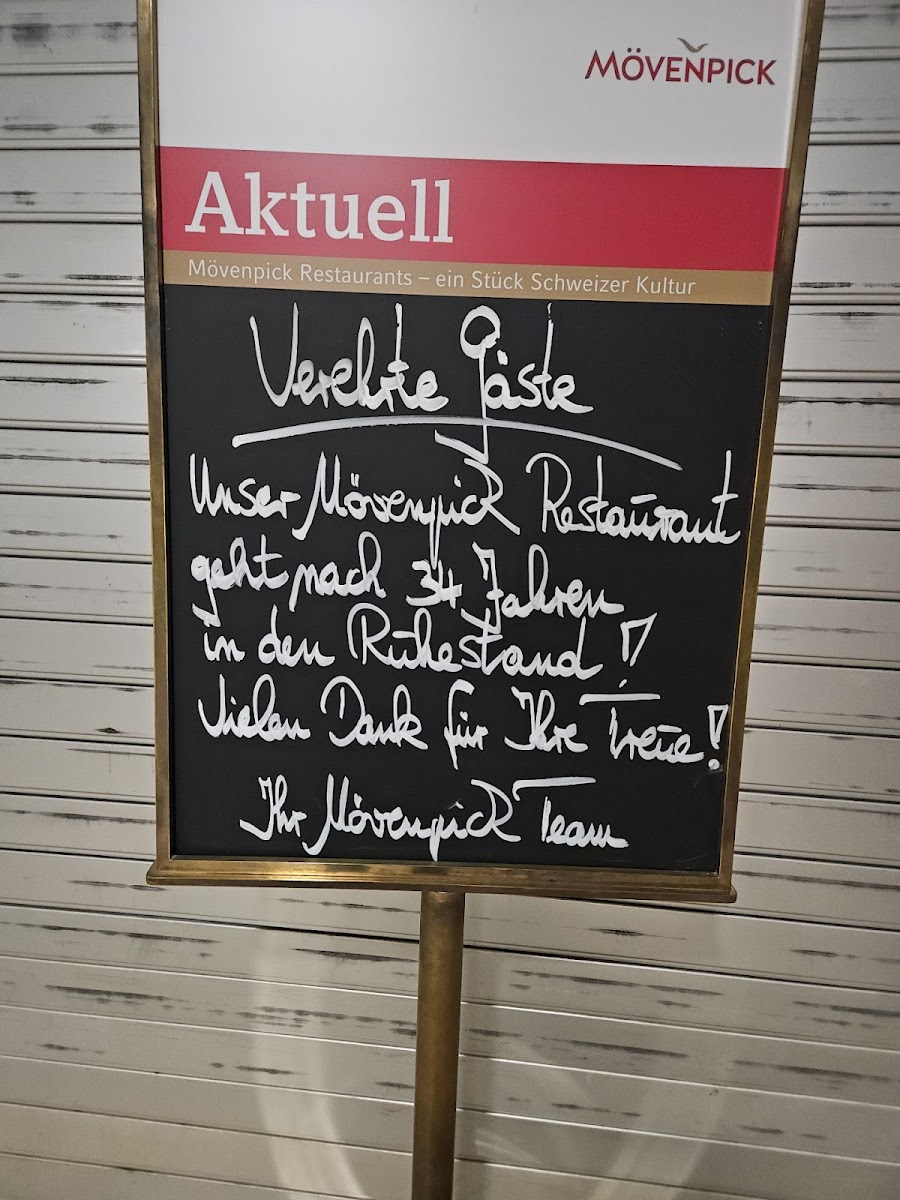 MÖVENPICK
Aktuell
Mövenpick Restaurants – ein Stück Schweizer Kultur
Verehrte Gäste
Unser Mövenpick Restaurant
geht nach 34 Jahren
in den Ruhestand!
Vielen Dank für Ihre Treue!
Ihr Mövenpick Team